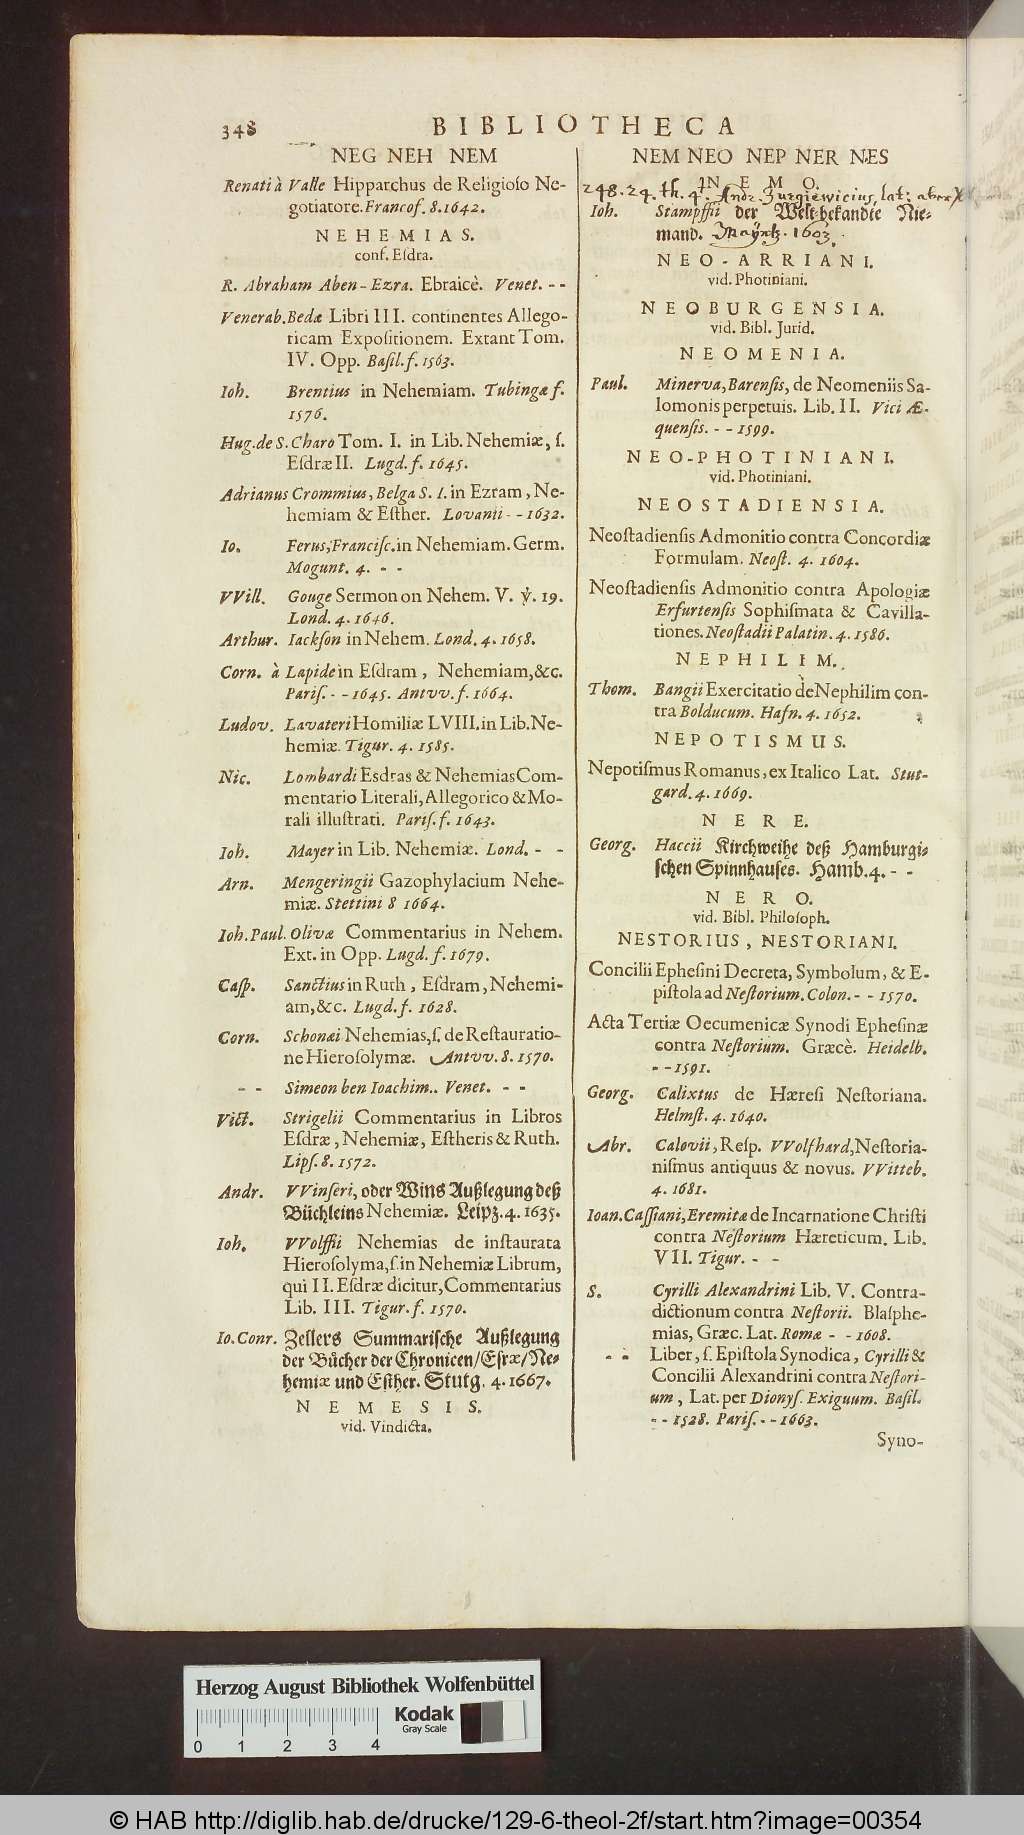 348
BIBLIOTHECA
NEG NEH NEM
Renati à Valle Hipparchus de Religioſo Ne-
gotiatore. Francof. 8. 1642.
NEHEMIAS.
conf. Eſdra.
R. Abraham Aben-Ezra. Ebraicè. Venet. - -
Venerab. Bedæ Libri III. continentes Allego-
ricam Expoſitionem. Extant Tom.
IV. Opp. Baſil. f. 1563.
Ioh. Brentius in Nehemiam. Tubingæ f.
1576.
Hug. de S. Charo Tom. I. in Lib. Nehemiæ, ſ.
Eſdræ II. Lugd. f. 1645.
Adrianus Crommius, Belga S. I. in Ezram, Ne-
hemiam & Eſther. Lovanii - - 1632.
Io. Ferus, Franciſc. in Nehemiam. Germ.
Mogunt. 4. - -
VVill. Gouge Sermon on Nehem. V. ỳ. 19.
Lond. 4. 1646.
Arthur. Iackſon in Nehem. Lond. 4. 1658.
Corn. à Lapide in Eſdram, Nehemiam, &c.
Pariſ. - - 1645. Antvv. f. 1664.
Ludov. Lavateri Homiliæ LVIII. in Lib. Ne-
hemiæ. Tigur. 4. 1585.
Nic. Lombardi Esdras & Nehemias Com-
mentario Literali, Allegorico & Mo-
rali illuſtrati. Pariſ. f. 1643.
Ioh. Mayer in Lib. Nehemiæ. Lond. - -
Arn. Mengeringii Gazophylacium Nehe-
miæ. Stettini 8 1664.
Ioh. Paul. Olivæ Commentarius in Nehem.
Ext. in Opp. Lugd. f. 1679.
Caſp. Sanctius in Ruth, Eſdram, Nehemi-
am, &c. Lugd. f. 1628.
Corn. Schonæi Nehemias, ſ. de Reſtauratio-
ne Hieroſolymæ. Antvv. 8. 1570.
- - Simeon ben Ioachim.. Venet. - -
Vict. Strigelii Commentarius in Libros
Eſdræ, Nehemiæ, Eſtheris & Ruth.
Lipſ. 8. 1572.
Andr. VVinſeri, oder Wins Außlegung deß
Büchleins Nehemiæ. Leipz. 4. 1635.
Ioh. VVolffii Nehemias de inſtaurata
Hieroſolyma, ſ. in Nehemiæ Librum,
qui II. Eſdræ dicitur, Commentarius
Lib. III. Tigur. f. 1570.
Io. Conr. Zellers Summariſche Außlegung
der Bücher der Chronicen/ Eſræ/ Ne-
hemiæ und Eſther. Stutg. 4. 1667.
NEMESIS.
vid. Vindicta.
NEM NEO NEP NER NES
NEMO.
248. 24. th. 4. Andr. Zurgiewicius, lat: aber
Ioh. Stampffii der Welt-bekandte Nie-
mand. Mayntz. 1603.
NEO-ARRIANI.
vid. Photiniani.
NEOBURGENSIA.
vid. Bibl. Jurid.
NEOMENIA.
Paul. Minerva, Barenſis, de Neomeniis Sa-
lomonis perpetuis. Lib. II. Vici Æ-
quenſis. - - 1599.
NEO-PHOTINIANI.
vid. Photiniani.
NEOSTADIENSIA.
Neoſtadienſis Admonitio contra Concordiæ
Formulam. Neoſt. 4. 1604.
Neoſtadienſis Admonitio contra Apologiæ
Erfurtenſis Sophiſmata & Cavilla-
tiones. Neoſtadii Palatin. 4. 1586.
NEPHILIM.
Thom. Bangii Exercitatio de Nephilim con-
tra Bolducum. Hafn. 4. 1652.
NEPOTISMUS.
Nepotiſmus Romanus, ex Italico Lat. Stut-
gard. 4. 1669.
NERE.
Georg. Haccii Kirchweihe deß Hamburgi-
ſchen Spinnhauſes. Hamb. 4. - -
NERO.
vid. Bibl. Philoſoph.
NESTORIUS, NESTORIANI.
Concilii Epheſini Decreta, Symbolum, & E-
piſtola ad Neſtorium. Colon. - - 1570.
Acta Tertiæ Oecumenicæ Synodi Epheſinæ
contra Neſtorium. Græcè. Heidelb.
- - 1591.
Georg. Calixtus de Hæreſi Neſtoriana.
Helmſt. 4. 1640.
Abr. Calovii, Reſp. VVolfhard, Neſtoria-
niſmus antiquus & novus. VVitteb.
4. 1681.
Ioan. Caſſiani, Eremitæ de Incarnatione Chriſti
contra Neſtorium Hæreticum. Lib.
VII. Tigur. - -
S. Cyrilli Alexandrini Lib. V. Contra-
dictionum contra Neſtorii. Blaſphe-
mias, Græc. Lat. Romæ - - 1608.
- - Liber, ſ. Epiſtola Synodica, Cyrilli &
Concilii Alexandrini contra Neſtori-
um, Lat. per Dionyſ. Exiguum. Baſil.
- - 1528. Pariſ. - - 1663.
Syno-
Herzog August Bibliothek Wolfenbüttel
Kodak
Gray Scale
0 1 2 3 4
© HAB http://diglib.hab.de/drucke/129-6-theol-2f/start.htm?image=00354